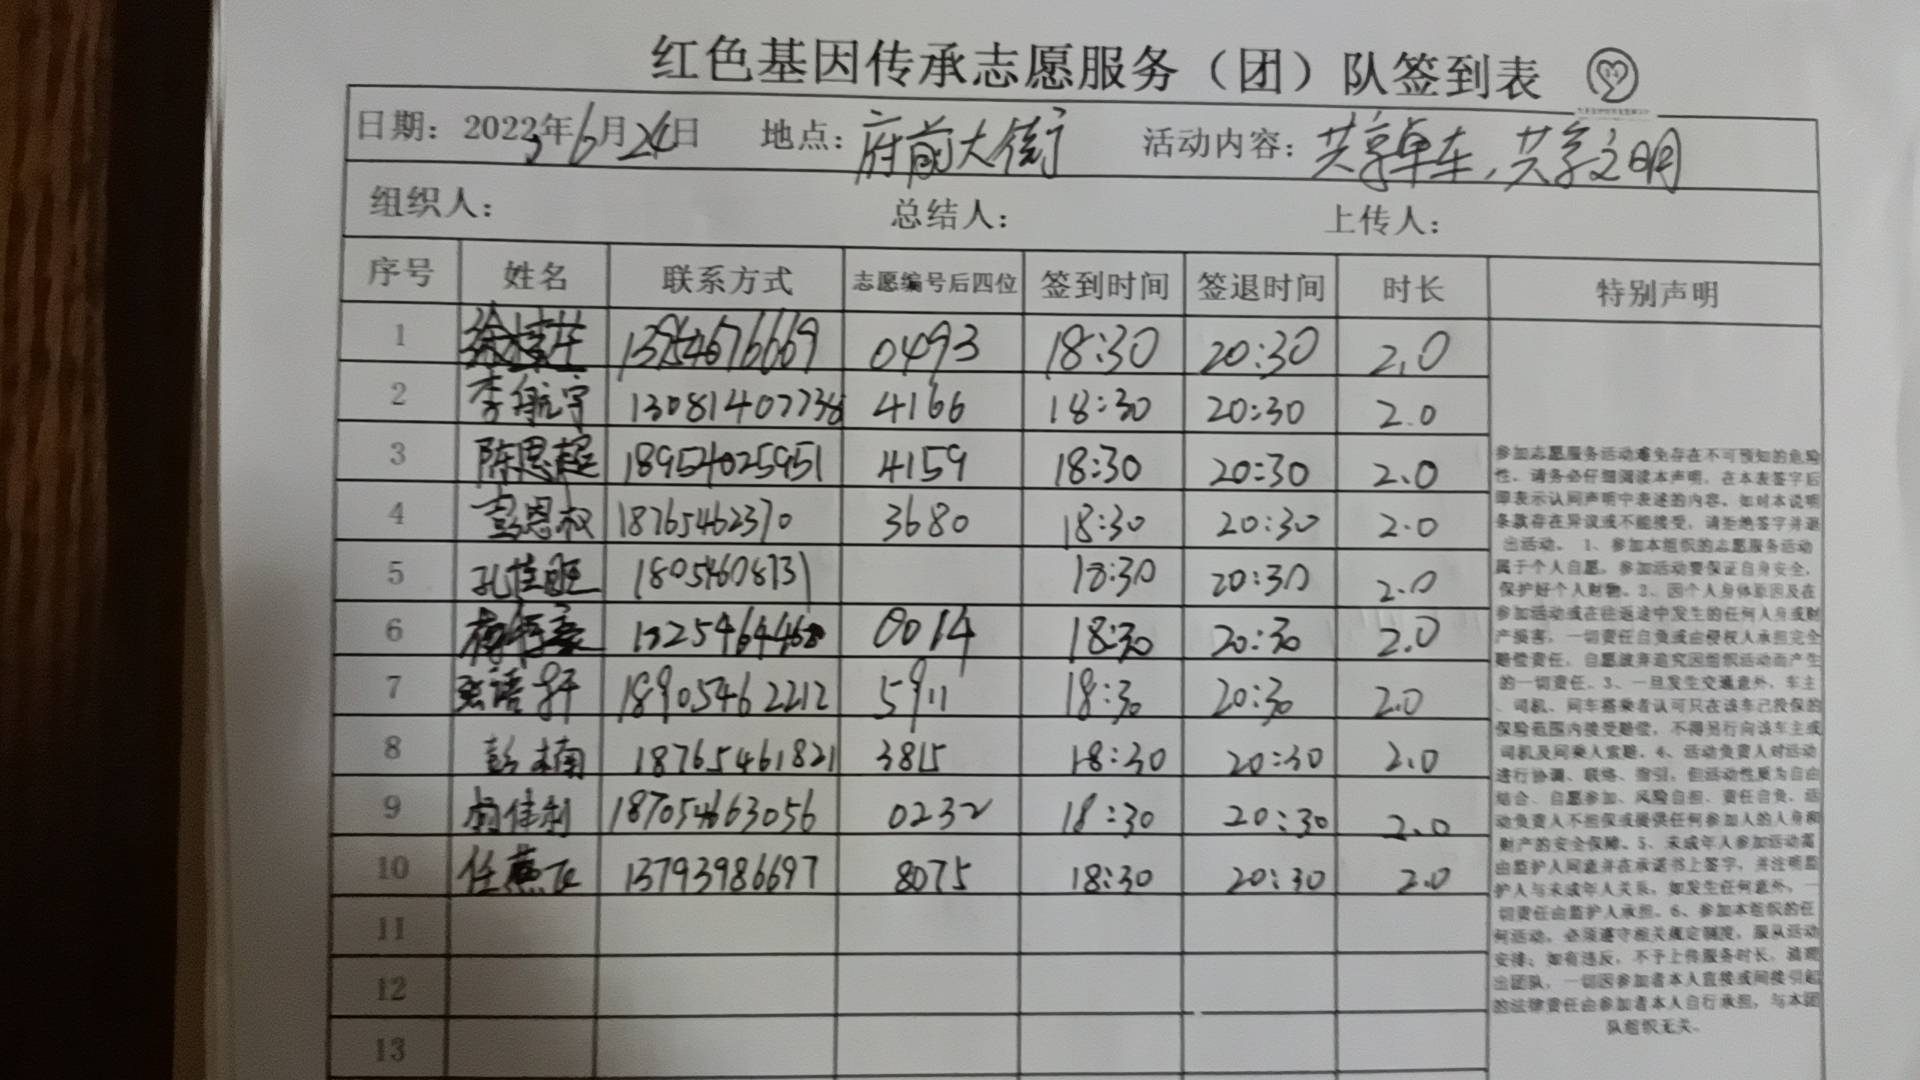 红色基因传承志愿服务（团）队签到表
日期：2023年6月24日 地点：府前大街 活动内容：共享单车，共享文明
组织人： 总结人： 上传人：
序号 姓名 联系方式 志愿编号后四位 签到时间 签退时间 时长 特别声明
1 0493 18:30 20:30 2.0
2 李航宇 13081407738 4166 18:30 20:30 2.0
3 陈思超 18954025951 4159 18:30 20:30 2.0
4 彭恩权 18765462370 3680 18:30 20:30 2.0
5 孔佳旺 18054608731 18:30 20:30 2.0
6 0014 18:30 20:30 2.0
7 张语轩 18905462212 5911 18:30 20:30 2.0
8 彭楠 18765461821 3815 18:30 20:30 2.0
9 18705463056 0232 18:30 20:30 2.0
10 任燕飞 13793986697 8075 18:30 20:30 2.0
11
12
13
参加志愿服务活动难免存在不可预知的危险
性。请务必仔细阅读本声明，在本表签字后
即表示认同声明中表述的内容。如对本说明
条款存在异议或不能接受，请拒绝签字并退
出活动。 1、参加本组织的志愿服务活动
属于个人自愿，参加活动要保证自身安全，
保护好个人财物。2、因个人身体原因及在
参加活动或在往返途中发生的任何人身或财
产损害，一切责任自负或由侵权人承担完全
赔偿责任，自愿放弃追究因组织活动而产生
的一切责任。3、一旦发生交通意外，车主
、司机、同车搭乘者认可只在该车已投保的
保险范围内接受赔偿，不得另行向该车主或
司机及同乘人索赔。4、活动负责人对活动
进行协调、联络、指引，但活动性质为自由
结合、自愿参加、风险自担、责任自负，活
动负责人不担保或提供任何参加人的人身和
财产的安全保障。5、未成年人参加活动需
由监护人同意并在承诺书上签字，并注明监
护人与未成年人关系，如发生任何意外，一
切责任由监护人承担。6、参加本组织的任
何活动，必须遵守相关规定制度，服从活动
安排；如有违反，不予上传服务时长，清理
出团队，一切因参加者本人直接或间接引起
的法律责任由参加者本人自行承担，与本团
队组织无关。